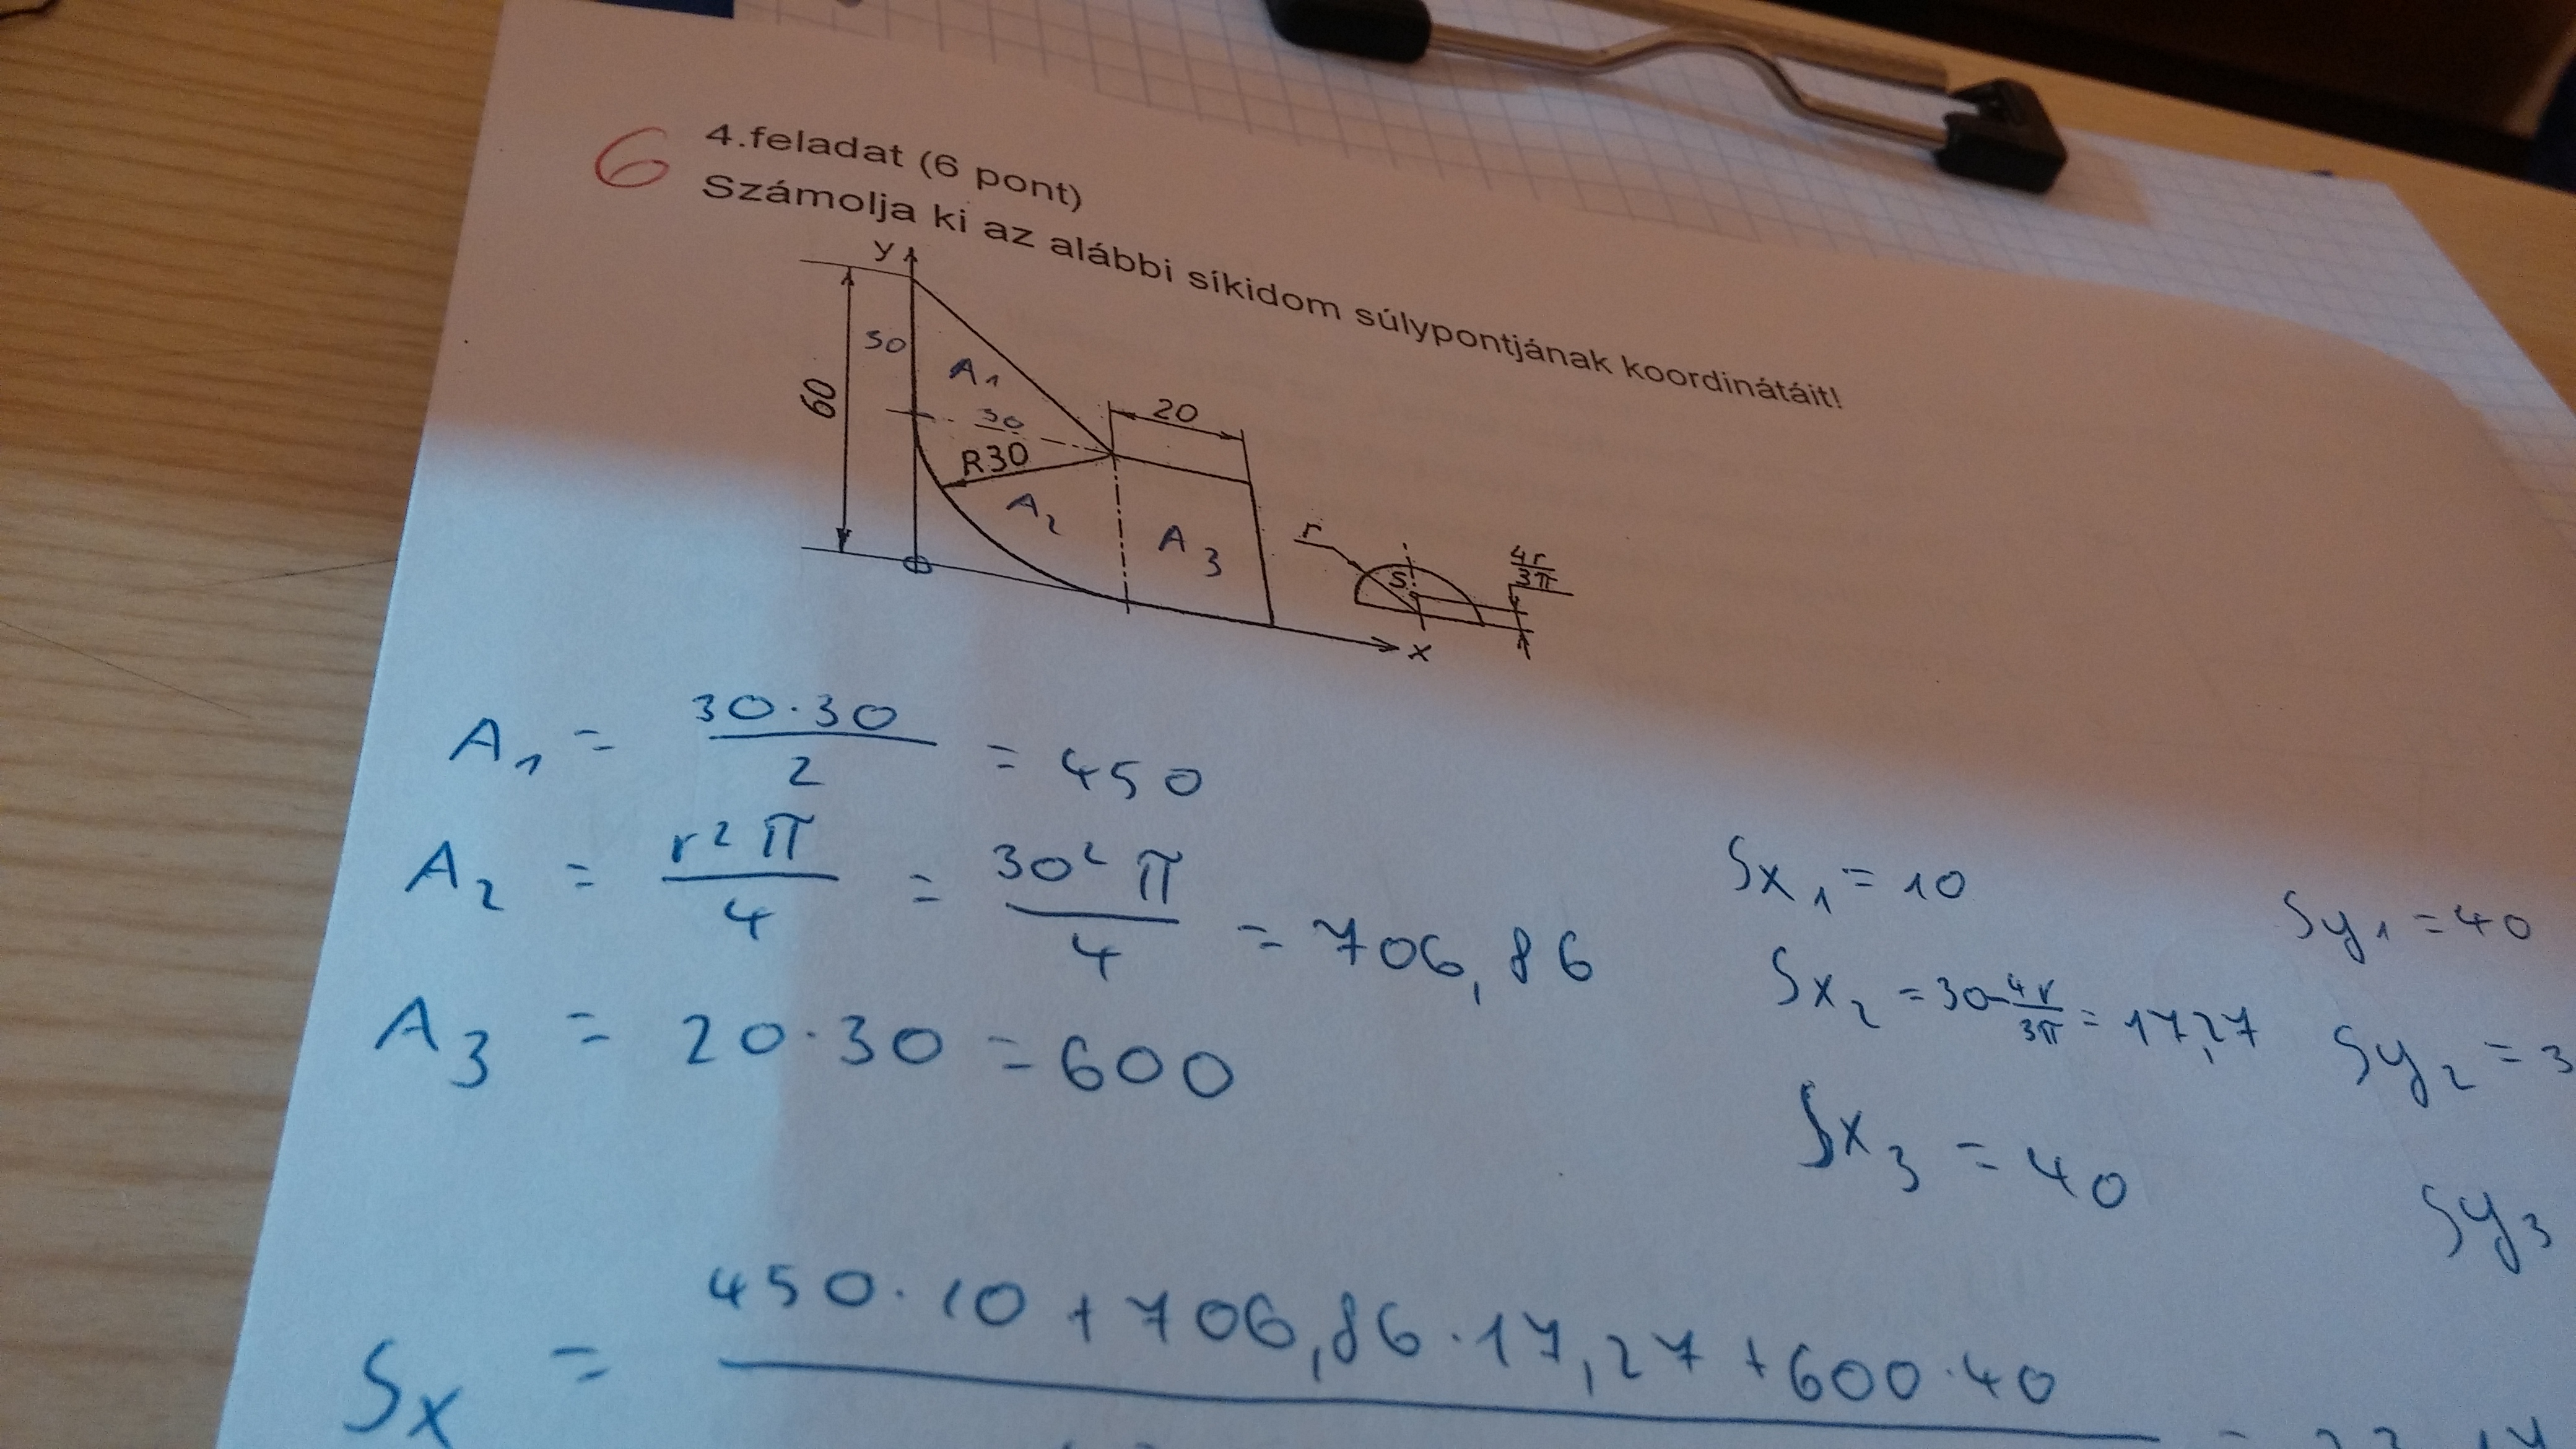 6
4.feladat (6 pont)
Számolja ki az alábbi síkidom súlypontjának koordinátáit!
y
60
30
A₁
30
20
R30
A₂
A₃
r
S
4r/3π
x
A₁ = 30·30/2 = 450
A₂ = r²π/4 = 30²π/4 = 706,86
A₃ = 20·30 = 600
Sx₁ = 10
Sy₁ = 40
Sx₂ = 30-4r/3π = 17,27
Sy₂ =
Sx₃ = 40
Sy₃
Sx = 450·10 + 706,86·17,27 + 600·40